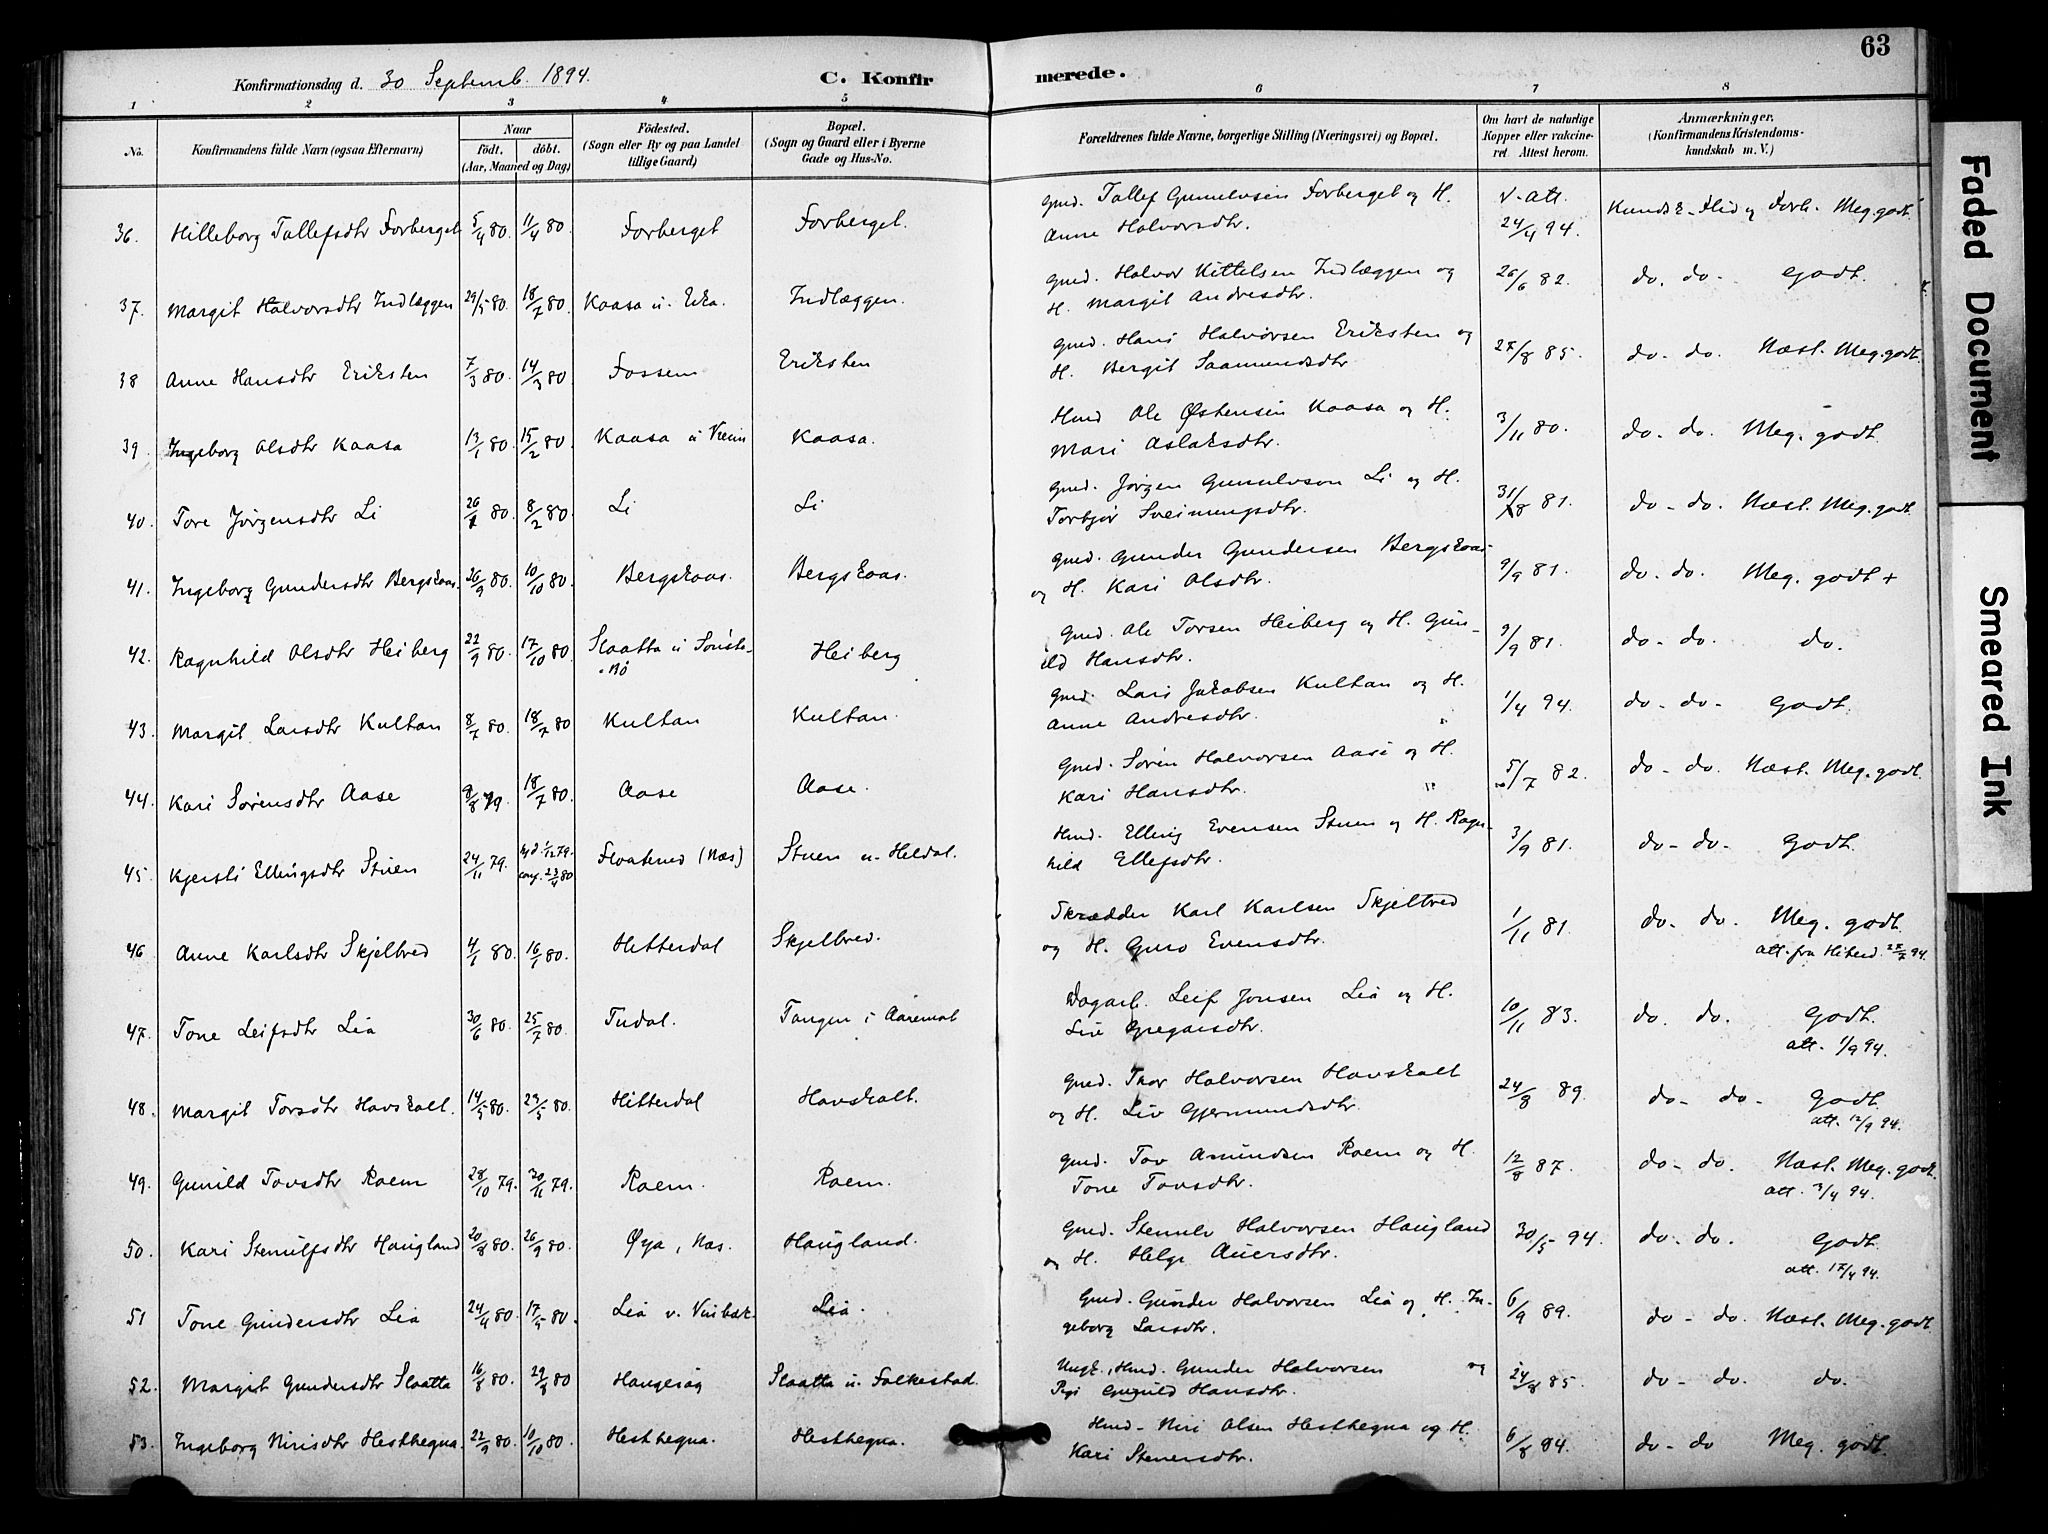 63
Konfirmationsdag d. 30 Septemb. 1894.
C. Konfirmerede.
1 2 3 4 5 6 7 8
No.
Konfirmandens fulde Navn (ogsaa Efternavn)
Naar
födt. döbt.
(Aar, Maaned og Dag)
Födested.
(Sogn eller By og paa Landet
tillige Gaard)
Bopæl.
(Sogn og Gaard eller i Byerne
Gade og Hus-No.
Forældrenes fulde Navne, borgerlige Stilling (Næringsvei) og Bopæl.
Om havt de naturlige
Kopper eller vakcine-
ret. Attest herom.
Anmærkninger.
(Konfirmandens Kristendoms-
kundskab m. V.)
36. Hilleborg Tallefsdtr Forberget 5/4 80. 11/4 80. Forberget Forberget. Gmd. Tallef Gunnulvsen Forberget og H.
Anne Halvorsdtr. v. att. 24/4 94. Kundsk- Flid og Forh. Meg. godt.
37. Margit Halvorsdtr Indlæggen 29/5 80. 18/7 80. Kaasa u. Eka. Indlæggen. Gmd. Halvor Kittelsen Indlæggen og
H. Margit Andresdtr. 26/6 82. do. do. Godt.
38 Anne Hansdtr Eriksten 7/3 80. 14/3 80. Fossem Eriksten Gmd. Hans Halvorsen Eriksten og
H. Bergit Saamundsdtr. 27/8 85. do. do. Næst. Meg. godt.
39. Ingeborg Olsdtr Kaasa 13/1 80. 15/2 80. Kaasa u Kaasa. Hmd Ole Østensen Kaasa og H.
Mari Aslaksdtr. 3/11 80. do. do. Meg. godt.
40. Tore Jörgensdtr Li 26/1 80 8/2 80. Li Li Gmd. Jörgen Gunnulvson Li og H.
Torbjör Sveinungsdtr. 31/8 81. do. do. Næst. Meg. godt.
41. Ingeborg Gundersdtr Bergskaas. 26/9 80. 10/10 80. Bergskaas. Bergskaas. Gmd. Gunder Gundersen Bergskaas
og H. Kari Olsdtr. 9/9 81. do. do. Meg. godt +
42. Ragnhild Olsdtr Heiberg 22/9 80. 17/10 80. Slaatta u Sönste-
Bö Heiberg Gmd. Ole Torsen Heiberg og H. Gun-
ild Hansdtr. 9/9 81. do. do. do.
43. Margit Larsdtr Kultan 8/7 80. 18/7 80 Kultan Kultan. Gmd. Lars Jakobsen Kultan og H.
Anne Andresdtr. 1/4 94. do. do. Godt.
44. Kari Sörensdtr Aase 8/8 79. 18/7 80. Aase Aase. Gmd. Sören Halvorsen Aase og H.
Kari Hansdtr. 5/7 82. do. do. Næst. Meg. godt.
45. Kjersti Ellingsdtr Stuen 24/11 79. hjd. 1/12 79. conf. 23/4 80 (Næs) Stuen u. Heldal. Hmd. Elling Evensen Stuen og H. Ragn-
hild Ellefsdtr. 3/9 81. do. do. Godt.
46 Anne Karlsdtr Skjelbred 4/1 80. 16/1 80. Hitterdal Skjelbred. Skrædder Karl Karlsen Skjelbred
og H. Guro Evensdtr. 1/11 81. do. do. Meg. godt.
att. fra Hiterd. 27/7 94.
47. Tone Leifsdtr Lia 30/6 80. 25/7 80. Tudal. Tangen i Aaremot Dagarb. Leif Jonsen Lia og H.
Live Gregarsdtr. 10/11 83. do. do. Godt.
att. 1/9 94.
48. Margit Torsdtr Havskalt. 14/5 80. 23/5 80. Hitterdal Havskalt. Gmd. Thor Halvorsen Havskalt
og H. Liv Gjermundsdtr. 24/8 89. do. do. Godt.
att. 12/9 94.
49. Gunild Tovsdtr Roem 28/10 79. 30/11 79. Roem. Roem. Gmd. Tov Amundsen Roem og H.
Tone Tovsdtr. 12/8 87. do. do. Næst. Meg. godt.
att. 3/4 94.
50. Kari Stenulfsdtr Haugland 20/8 80. 26/9 80. Øya, Næs. Haugland. Gmd. Stenulv Halvorsen Haugland
og H. Helge Auversdtr. 30/5 94. do. do. Godt.
att. 17/4 94.
51 Tone Gundersdtr Lia 24/4 80. 17/5 80. Lia v. Vinbæk. Lia. Gmd. Gunder Halvorsen Lia og H. In-
geborg Larsdtr. 6/9 89. do. do. Næst. Meg. godt
52. Margit Gundersdtr Slaatta 16/8 80. 29/8 80 Haugesag Slaatta u. Folkestad. Ungk., Hmd. Gunder Halvorsen og
Pige Gunild Hansdtr. 24/8 85. do. do. do.
53. Ingeborg Nirisdtr Hesthegna. 22/9 80. 10/10 80. Hesthegna. Hesthegna. Hmd. Niri Olsen Hesthegna og H.
Kari Stenersdtr. 6/8 84. do. do Meg. godt.
Faded Document
Smeared Ink